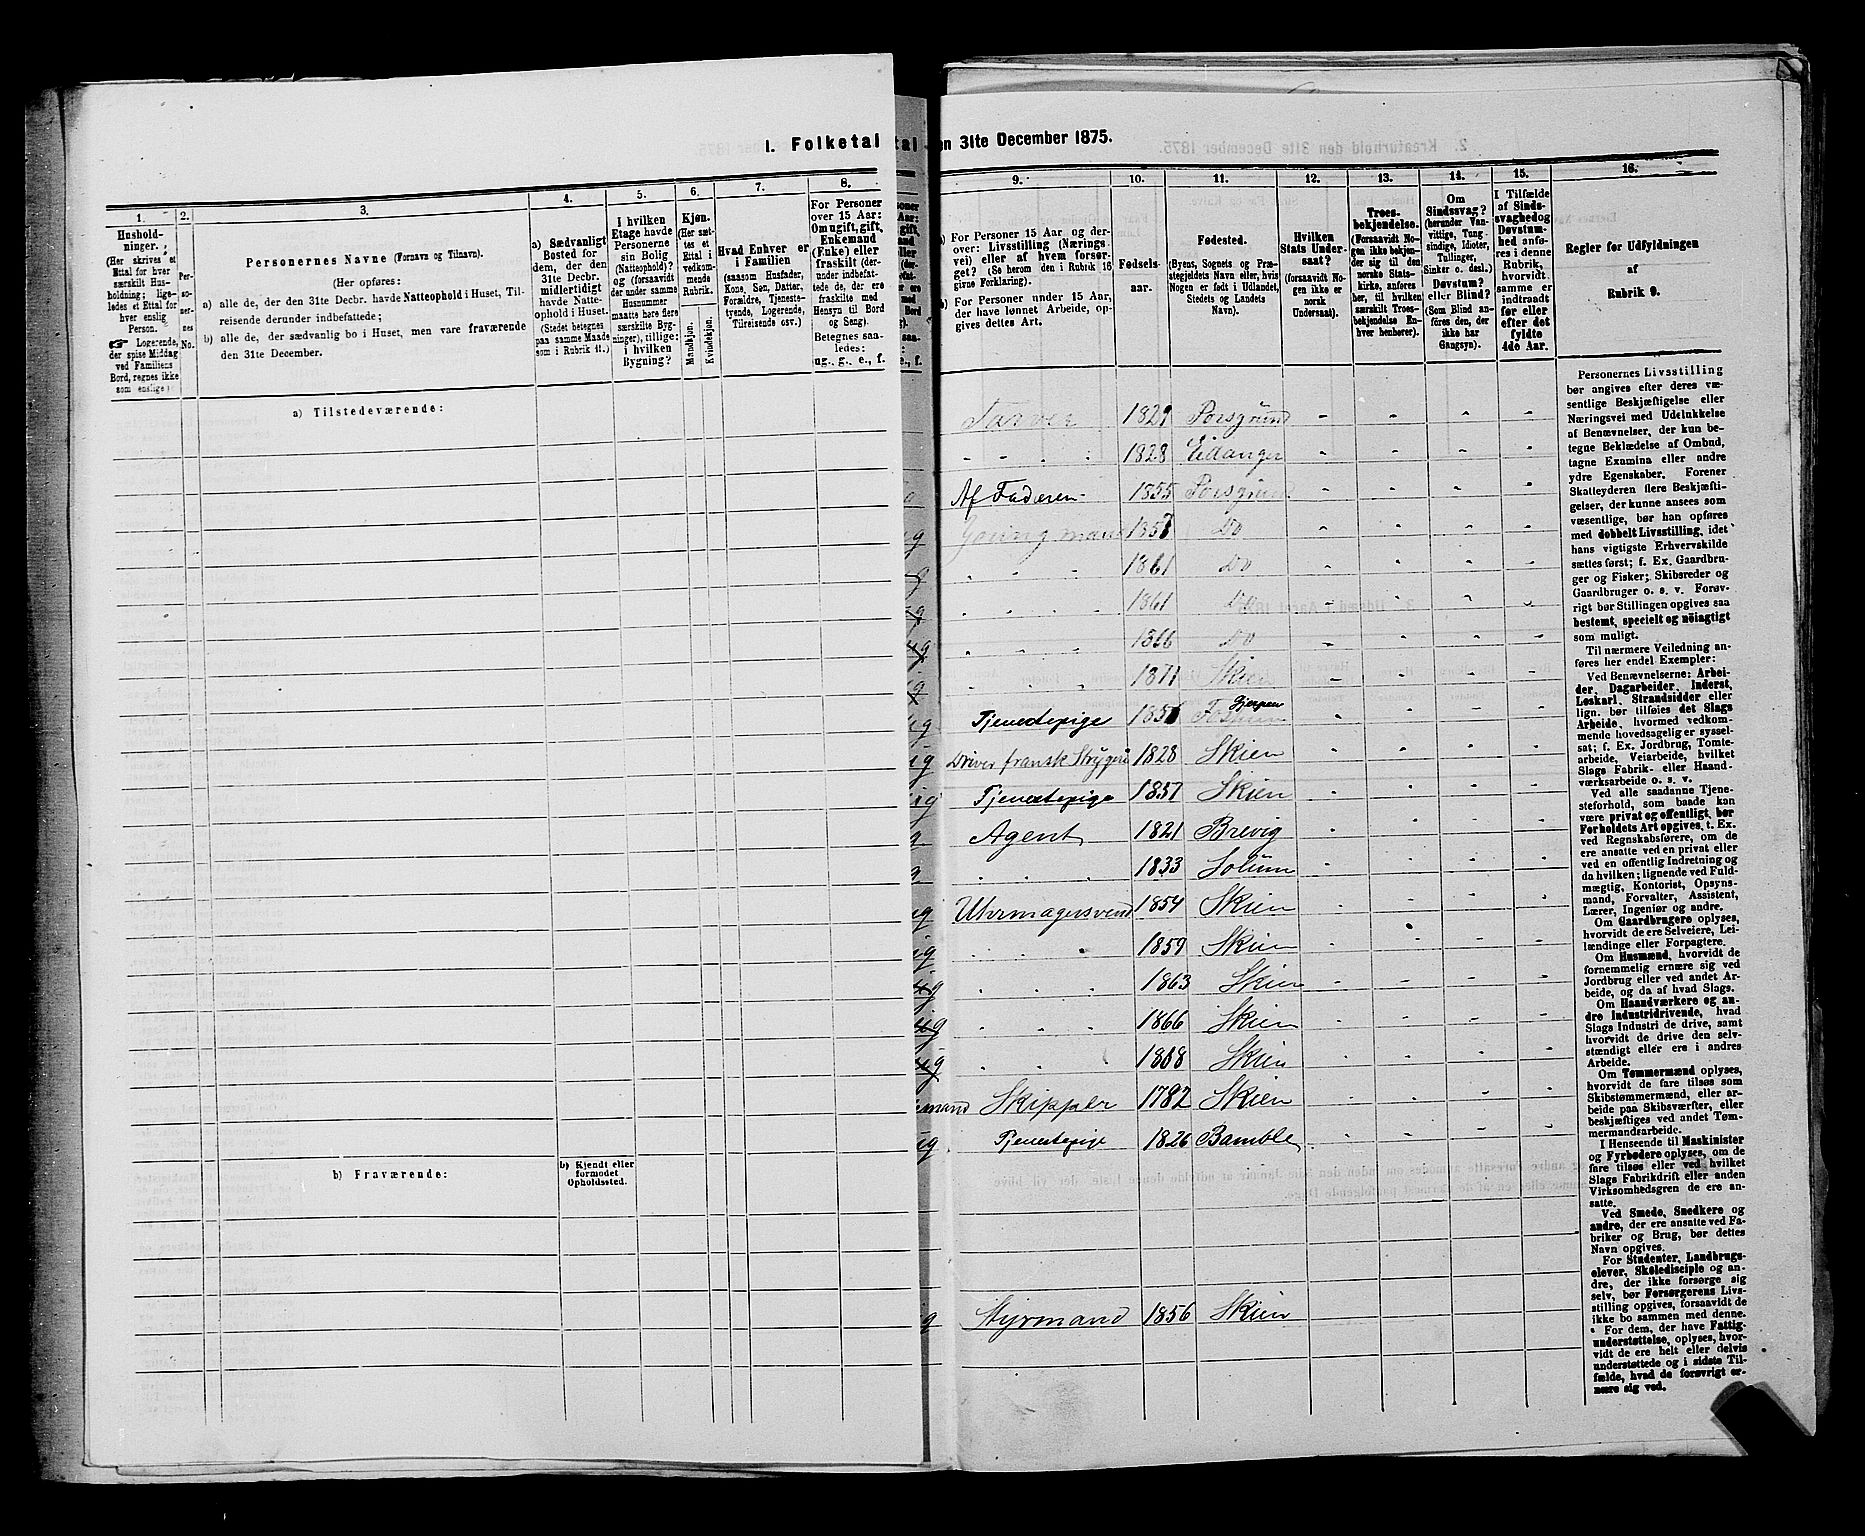 I. Folketal
tal
en 31te December 1875.
1.
2.
3.
4.
5.
6.
7.
8.
Hushold-
ninger.
(Her skrives et
Ettal for hver
særskilt Hus-
holdning; lige-
ledes et Ettal for
hver enslig
Person.
☞ Logerende,
der spise Middag
ved Familiens
Bord, regnes ikke
som enslige).
Per-
so-
ner-
nes
No.
Personernes Navne (Fornavn og Tilnavn).
(Her opføres:
a) alle de, der den 31te Decbr. havde Natteophold i Huset, Til-
reisende derunder indbefattede;
b) alle de, der sædvanlig bo i Huset, men vare fraværende
den 31te December.
a) Sædvanligt
Bosted for
dem, der den
31te Decbr.
midlertidigt
havde Natte-
ophold i Huset.
(Stedet betegnes
paa samme Maade
som i Rubrik 11.)
I hvilken
Etage havde
Personerne
sin Bolig
(Natteophold)?
og (forsaavidt
der under samme
Husnummer
maatte høre flere
særskilte Byg-
ninger), tillige:
i hvilken
Bygning?
Kjøn.
(Her sæt-
tes et
Ettal i
vedkom-
mende
Rubrik.)
Mandkjøn.
Kvindekjøn.
Hvad Enhver er
i Familien
(saasom Husfader,
Kone, Søn, Datter,
Forældre, Tjeneste-
tyende, Logerende,
Tilreisende osv.)
For Personer
over 15 Aar:
Om ugift, gift,
Enkemand
(Enke) eller
fraskilt (der-
under indbefat-
tede de, der ere
fraskilte med
Hensyn til Bord
og Seng).
Betegnes saa-
ledes:
ug., g., e., f.
a) Tilstedeværende:
b) Fraværende:
b) Kjendt eller
formodet
Opholdssted.
9.
10.
11.
12.
13.
14.
15.
16.
a) For Personer 15 Aar og der-
over: Livsstilling (Nærings-
vei) eller af hvem forsør-
get? (Se herom den i Rubrik 16
givne Forklaring).
b) For Personer under 15 Aar,
der have lønnet Arbeide, op-
gives dettes Art.
Fødsels-
aar.
Fødested.
(Byens, Sognets og Præ-
stegjeldets Navn eller, hvis
Nogen er født i Udlandet,
Stedets og Landets
Navn).
Hvilken
Stats Under-
saat?
(forsaavidt No-
gen ikke er
norsk
Undersaat).
Troes-
bekjendelse.
(Forsaavidt No-
gen ikke bekjen-
der sig til den
norske Stats-
kirke, anføres
her, til hvilken
særskilt Troes-
bekjendelse En-
hver henhører).
Om
Sindssvag?
(herunder Van-
vittige, Tung-
sindige, Idioter,
Tullinger,
Sinker o. desl.)
Døvstum?
eller Blind?
(Som Blind an-
føres den, der
ikke har
Gangsyn).
I Tilfælde
af Sinds-
svaghed og
Døvstum-
hed anfø-
res i denne
Rubrik,
hvorvidt
samme er
indtraadt
før eller
efter det
fyldte
4de Aar.
Regler for Udfyldningen
af
Rubrik 9.
Farver 1829 Porsgrund
1828 Eidanger
Af Faderen 1855 Porsgrund
ug 1857 Do
g 1861 Do
ug 1861 Do
ug 1866 Do
ug 1871 Skien
ug Tjenestepige Gjerpen
ug Driver fransk Strygeri 1828 Skien
ug Tjenestepige 1857 Skien
g Agent 1821 Brevig
g 1833 Solum
ug Uhrmagersvend 1854 Skien
ug 1859 Skien
ug 1863 Skien
ug 1866 Skien
ug 1868 Skien
mand Skipper 1782 Skien
ug Tjenestepige 1826 Bamble
g Styrmand 1856 Skien
Personernes Livsstilling
bør angives efter deres væ-
sentlige Beskjæftigelse eller
Næringsvei med Udelukkelse
af Benævnelser, der kun be-
tegne Beklædelse af Ombud,
tagne Examina eller andre
ydre Egenskaber. Forener
Skatteyderen flere Beskjæfti-
gelser, der kunne ansees som
væsentlige, bør han opføres
med dobbelt Livsstilling, idet
hans vigtigste Erhvervskilde
sættes først; f. Ex. Gaardbru-
ger og Fisker; Skibsreder og
Gaardbruger o. s. v. Forøv-
rigt bør Stillingen opgives saa
bestemt, specielt og nöiagtigt
som muligt.
Til nærmere Veiledning an-
føres her endel Exempler:
Ved Benævnelserne: Arbei-
der, Dagarbeider, Inderst,
Løskarl, Strandsidder eller
lign. bør tilføies det Slags
Arbeide, hvormed vedkom-
mende hovedsagelig er syssel-
sat; f. Ex. Jordbrug, Tomte-
arbeide, Veiarbeide, hvilket
Slags Fabrik- eller Haand-
værksarbeide o. s. v.
Ved alle saadanne Tjene-
steforhold, som baade kan
være privat og offentligt, bør
Forholdets Art opgives, t. Ex.
ved Regnskabsførere, om de
ere ansatte ved en privat eller
ved en offentlig Indretning og
da hvilken; lignende ved Fuld-
mægtig, Kontorist, Opsyns-
mand, Forvalter, Assistent,
Lærer, Ingeniør og andre.
Om Gaardbrugere oplyses,
hvorvidt de ere Selveiere, Lei-
lændinge eller Forpagtere.
Om Husmænd, hvorvidt de
fornemmelig ernære sig ved
Jordbrug eller ved andet Ar-
beide, og da af hvad Slags.
Om Haandværkere og an-
dre Industridrivende, hvad
Slags Industri de drive, samt
hvorvidt de drive den selv-
stændigt eller ere i andres
Arbeide.
Om Tømmermænd oplyses,
hvorvidt de fare tilsøs som
Skibstømmermænd, eller ar-
beide paa Skibsværfter, eller
beskjæftiges ved andet Tøm-
mermandsarbeide.
I Henseende til Maskinister
og Fyrbødere oplyses, om de
fare tilsøs eller ved hvilket
Slags Fabrikdrift eller anden
Virksomhedsgren de ere an-
satte.
Ved Smede, Snedkere og
andre, der ere ansatte ved Fa-
briker og Brug, bør dettes
Navn opgives.
For Studenter, Landbrugs-
elever, Skoledisciple og an-
dre, der ikke forsørge sig
selv, bør Forsørgerens Livs-
stilling opgives, forsaavidt de
ikke bo sammen med denne.
For dem, der have Fattig-
understøttelse, oplyses, hvor-
vidt de ere helt eller delvis
understøttede og i sidste Til-
fælde, hvad de forøvrigt er-
nære sig ved.